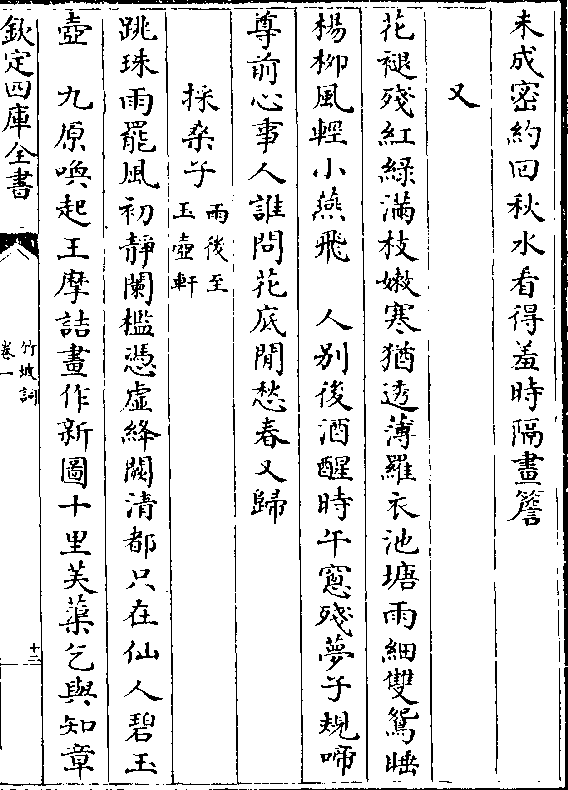 未成密約回秋水看得羞時隔畫簷
又
花褪殘紅綠滿枝嫩寒猶透薄羅衣池塘雨細雙鴛睡
楊柳風輕小燕飛　人别後酒醒時午窻殘夢子規啼
尊前心事人誰問花底閒愁春又歸
採桑子
雨後至
玉壺軒
跳珠雨罷風初靜闌檻憑虛絳闕清都只在仙人碧玉
壺　九原喚起王摩詰畫作新圖十里芙蕖乞與知章
欽定四庫全書
竹坡詞
卷一
十三